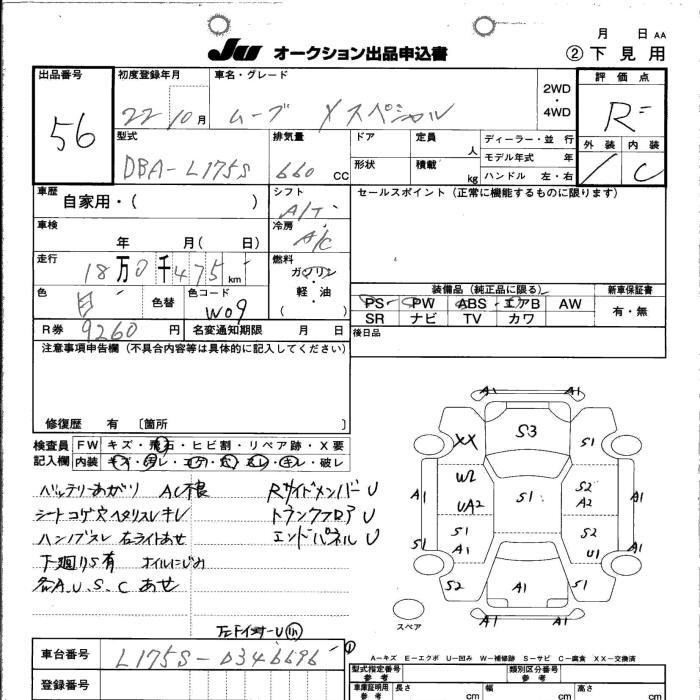 月 日 AA
JU オークション出品申込書 ② 下見用
出品番号 56
初度登録年月 22 / 10 月
車名・グレード ムーブ Xスペシャル
2WD ・ 4WD
評価点 R
外装 内装 C
型式 DBA-L175S
排気量 660 CC
ドア
形状
定員 人
積載 kg
ディーラー・並行
モデル年式 年
ハンドル 左・右
車歴 自家用・( )
シフト A/T
セールスポイント(正常に機能するものに限ります)
車検 年 月( 日)
冷房 A/C
走行 18万0千475 km
燃料 ガソリン ・ 軽油 ( )
色 白 色替 色コード W09
装備品(純正品に限る) 新車保証書
PS PW ABS エアB AW 有・無
SR ナビ TV カワ
R券 9260 円 名変通知期限 月 日
後日品
注意事項申告欄(不具合内容等は具体的に記入してください)
修復歴 有 〔箇所 〕
検査員記入欄 FW キズ・飛石・ヒビ割・リペア跡・X要
内装 キズ・汚レ・コゲ・穴・スレ・キレ・破レ
バッテリーあがり AC不良 RサイドメンバーU
シートコゲ穴ヘタリスレキレ トランクフロアU
ハンドルスレ 右ライトあせ エンドパネルU
下廻りS有 オイルにじみ
各A.U.S.C あせ
A1 A1
XX S3 S1
A1 W2 UA2 S1 S2 A2 A1
S1 A1 S2 U1
S2 A1 S1
A1 A1
スペア
A-キズ E-エクボ U-凹み W-補修跡 S-サビ C-腐食 XX-交換済
車台番号 L175S-0346696
登録番号
型式指定番号 参考
類別区分番号 参考
車庫証明用 参考 長さ cm 幅 cm 高さ cm